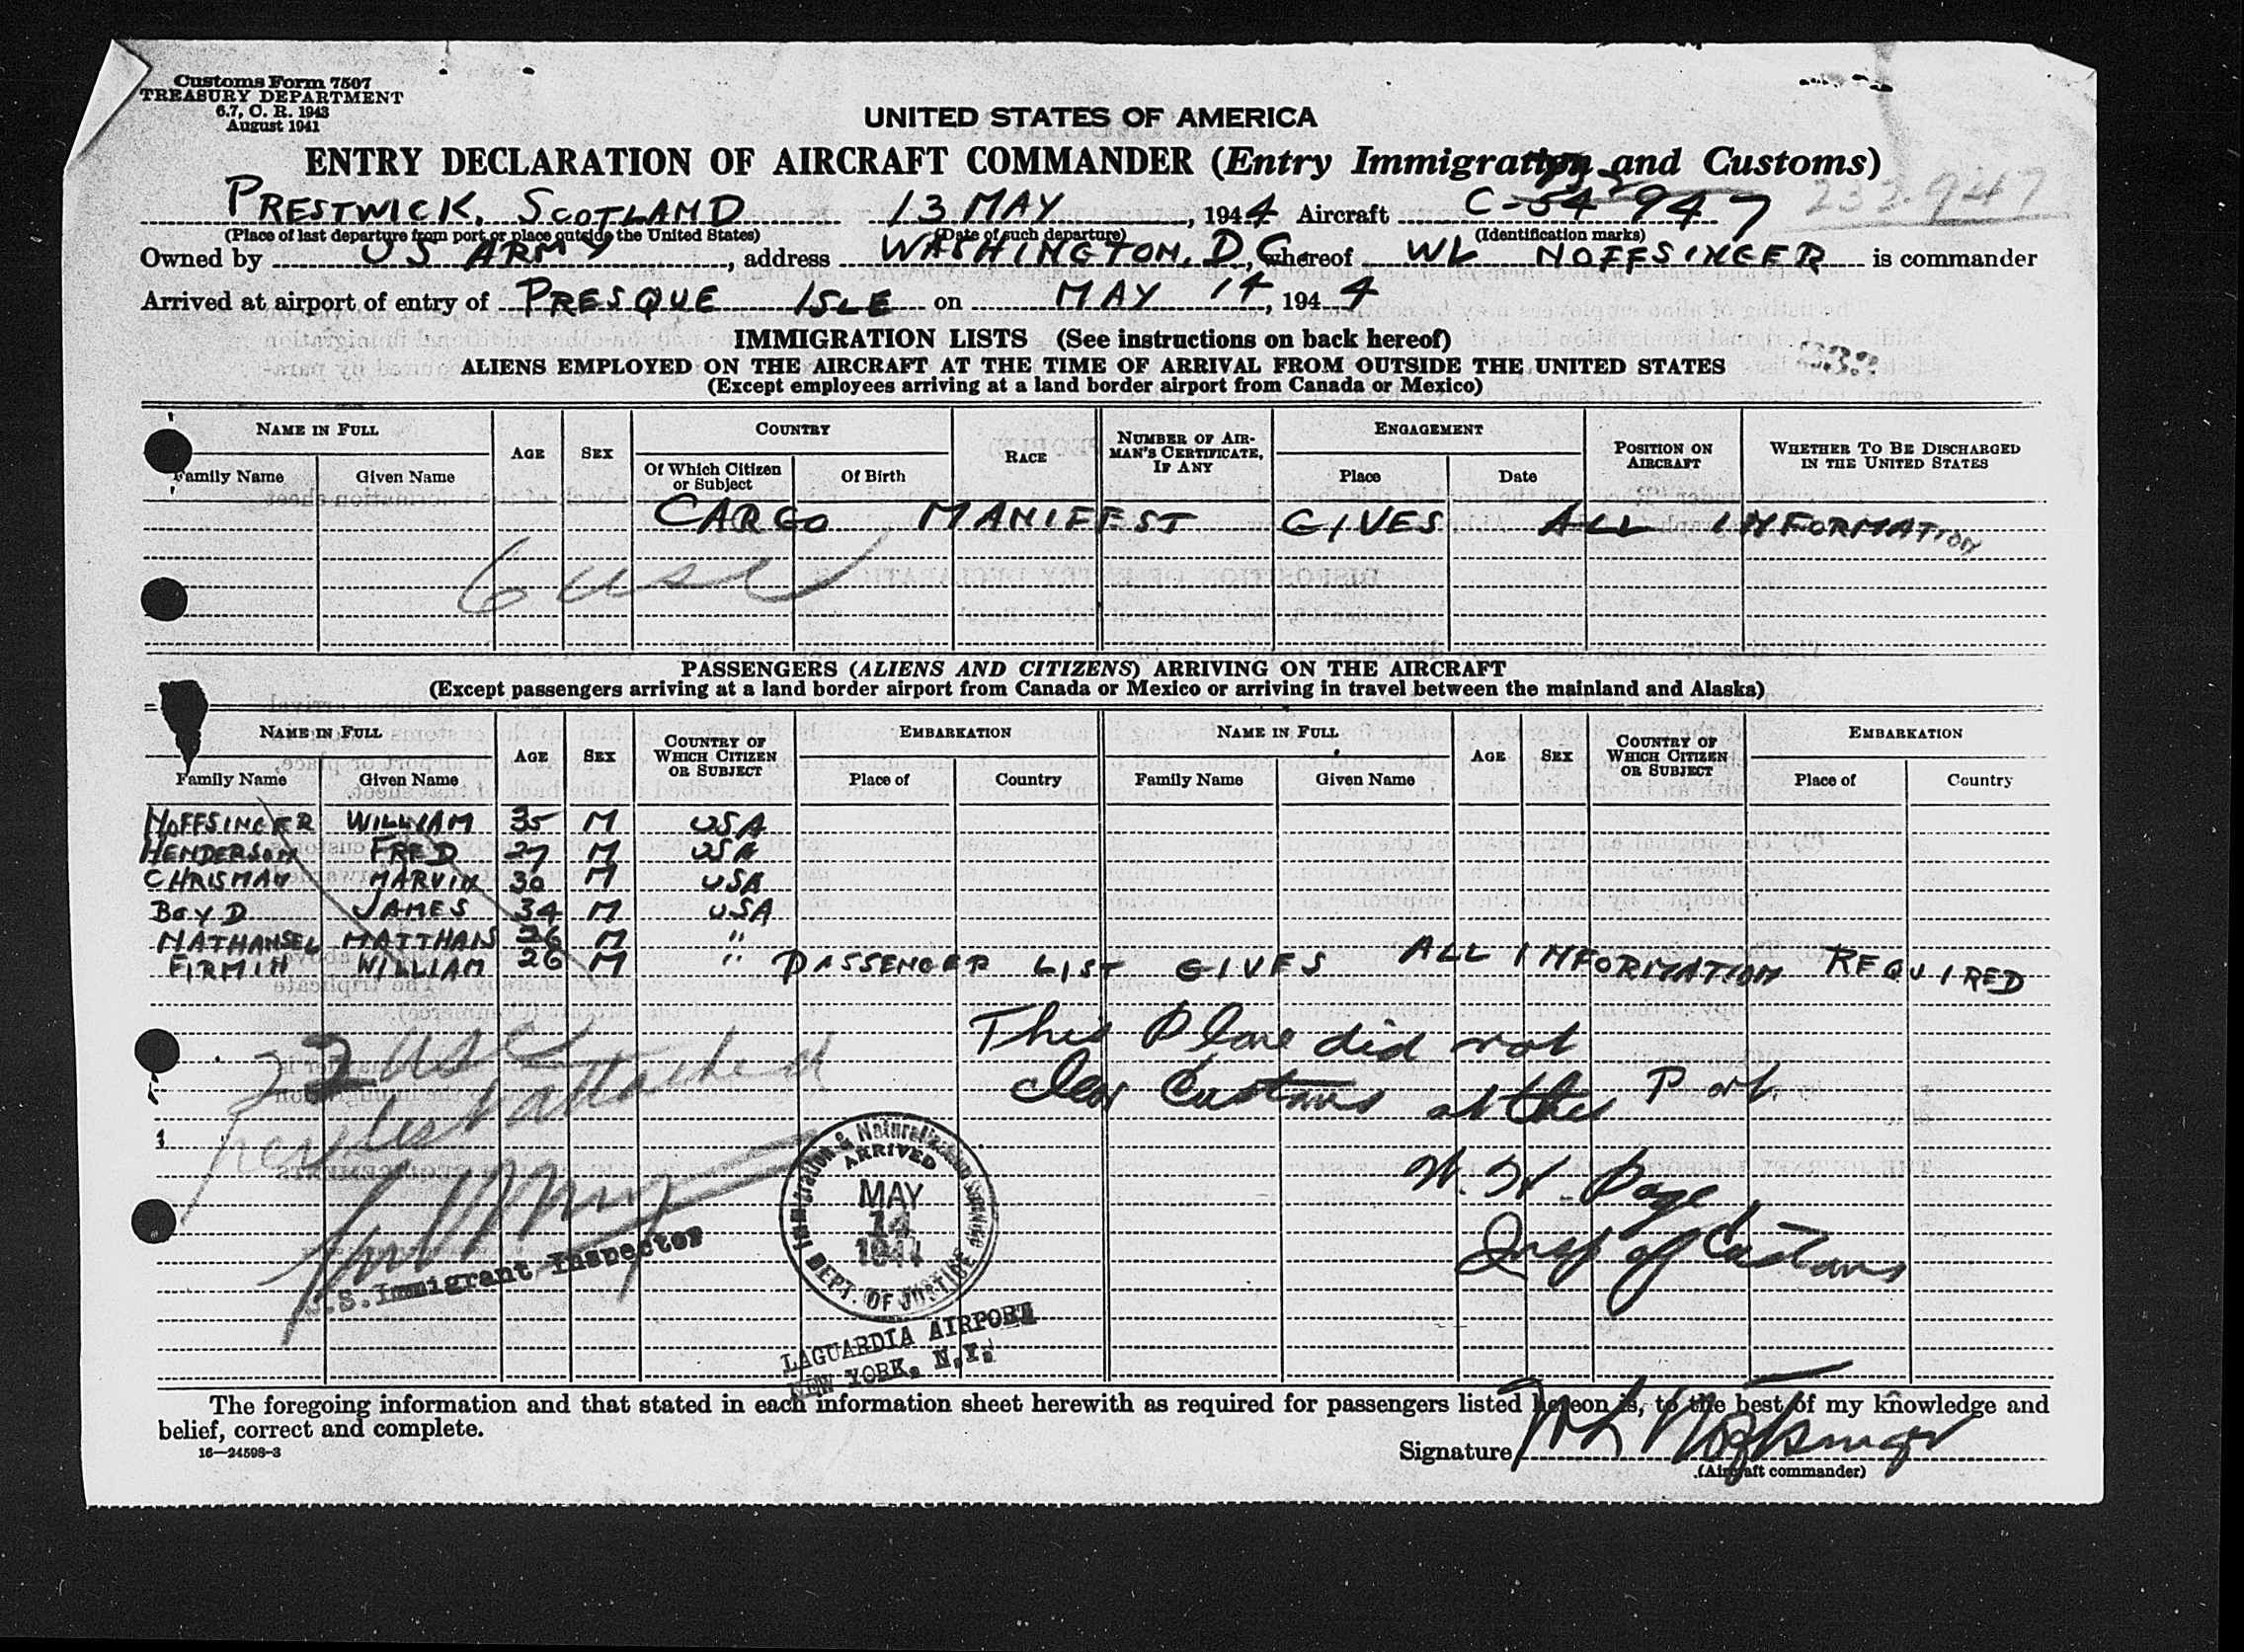 Customs Form 7507
TREASURY DEPARTMENT
6.7, C. R. 1943
August 1941
UNITED STATES OF AMERICA
ENTRY DECLARATION OF AIRCRAFT COMMANDER (Entry Immigration and Customs)
PRESTWICK, SCOTLAND 13 MAY, 1944 Aircraft C-54 947 232947
(Place of last departure from port or place outside the United States) (Date of such departure) (Identification marks)
Owned by US ARMY, address WASHINGTON, D.C. whereof WL NOFFSINGER is commander
Arrived at airport of entry of PRESQUE ISLE on MAY 14, 1944
IMMIGRATION LISTS (See instructions on back hereof)
ALIENS EMPLOYED ON THE AIRCRAFT AT THE TIME OF ARRIVAL FROM OUTSIDE THE UNITED STATES
(Except employees arriving at a land border airport from Canada or Mexico)
NAME IN FULL AGE SEX COUNTRY RACE NUMBER OF AIRMAN'S CERTIFICATE, IF ANY ENGAGEMENT POSITION ON AIRCRAFT WHETHER TO BE DISCHARGED IN THE UNITED STATES
Family Name Given Name Of Which Citizen or Subject Of Birth Place Date
CARGO MANIFEST GIVES ALL INFORMATION
6 usc
PASSENGERS (ALIENS AND CITIZENS) ARRIVING ON THE AIRCRAFT
(Except passengers arriving at a land border airport from Canada or Mexico or arriving in travel between the mainland and Alaska)
NAME IN FULL AGE SEX COUNTRY OF WHICH CITIZEN OR SUBJECT EMBARKATION NAME IN FULL AGE SEX COUNTRY OF WHICH CITIZEN OR SUBJECT EMBARKATION
Family Name Given Name Place of Country Family Name Given Name Place of Country
NOFFSINGER WILLIAM 35 M USA
HENDERSON FRED 27 M USA
CHRISMAN MARVIN 30 M USA
BOYD JAMES 34 M USA
NATHANSEL MATTHAIS 26 M "
FIRMIN WILLIAM 26 M " PASSENGER LIST GIVES ALL INFORMATION REQUIRED
This Plane did not
clear Customs at this Port.
22 usc
per list attached
W. W. Page
Insp of Customs
U.S. Immigrant Inspector
Immigration & Naturalization Service
ARRIVED
MAY
14
1944
DEPT. OF JUSTICE
LAGUARDIA AIRPORT
NEW YORK, N.Y.
The foregoing information and that stated in each information sheet herewith as required for passengers listed hereon is, to the best of my knowledge and
belief, correct and complete.
16—24598-3
Signature WL Noffsinger
(Aircraft commander)